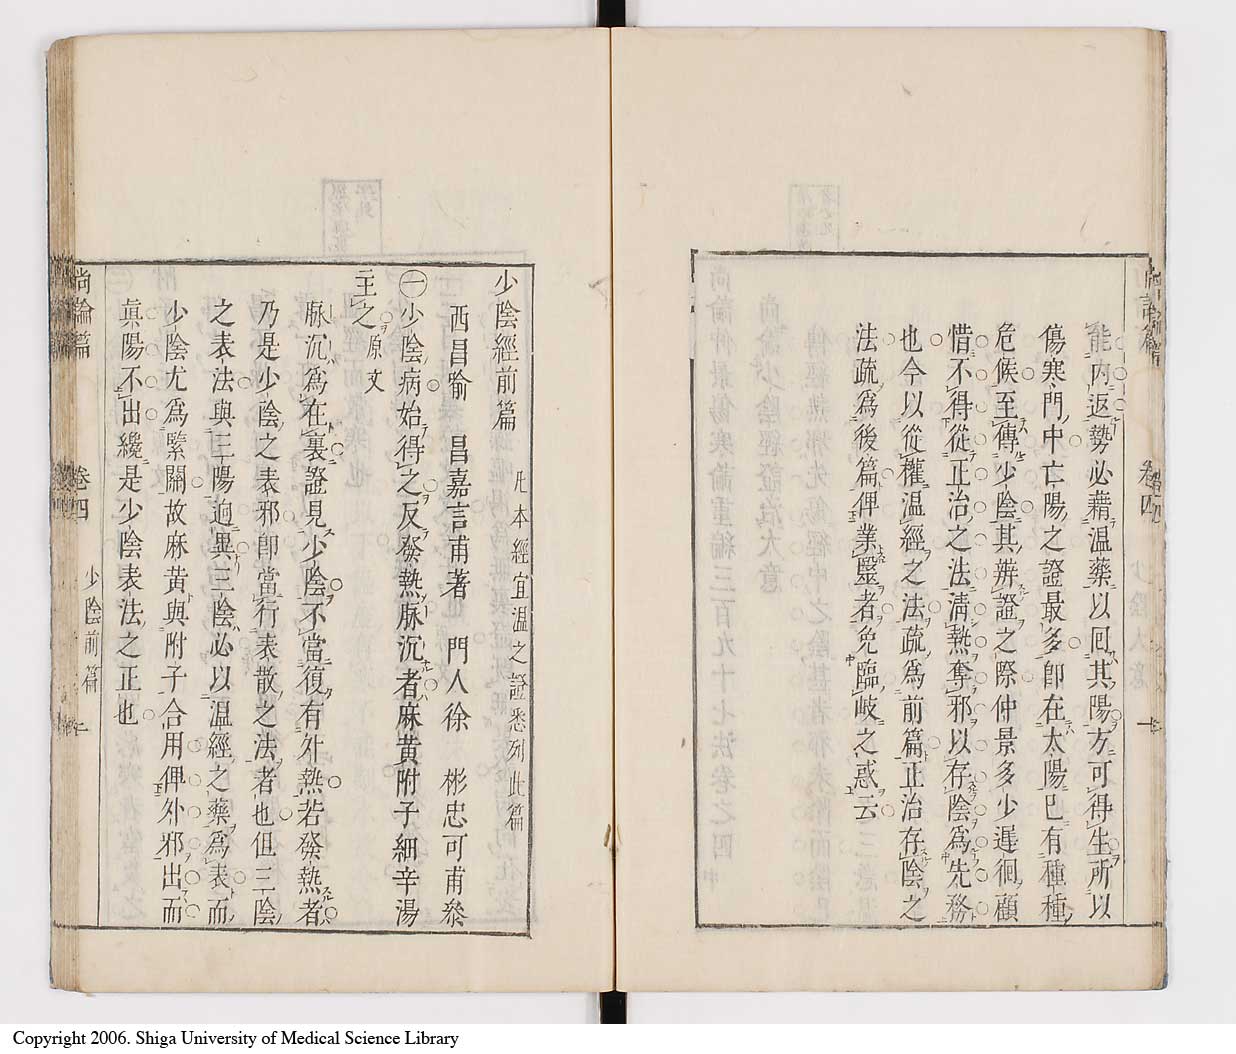 能內返勢必藉温藥以囘其陽方可得生所以
傷寒門中亡陽之證最多卽在太陽已有種種
危候至傳少陰其辨證之際仲景多少遲徊顧
惜不得從正治之法淸熱奪邪以存陰爲先務
也今以從權温經之法疏爲前篇正治存陰之
法疏爲後篇俾業醫者免臨岐之惑云
尚論篇
卷四
一
少陰經前篇 凡本經宜温之證悉列此篇
西昌喻 昌嘉言甫著 門人徐 彬忠可甫叅
㊀少陰病始得之反發熱脉沉者麻黄附子細辛湯
主之 原文
脉沉爲在裏證見少陰不當復有外熱若發熱者
乃是少陰之表邪卽當行表散之法者也但三陰
之表法與三陽逈異三陰必以温經之藥爲表而
少陰尤爲緊關故麻黄與附子合用俾外邪出而
眞陽不出纔是少陰表法之正也
尚論篇
卷四
少陰前篇
二
Copyright 2006. Shiga University of Medical Science Library